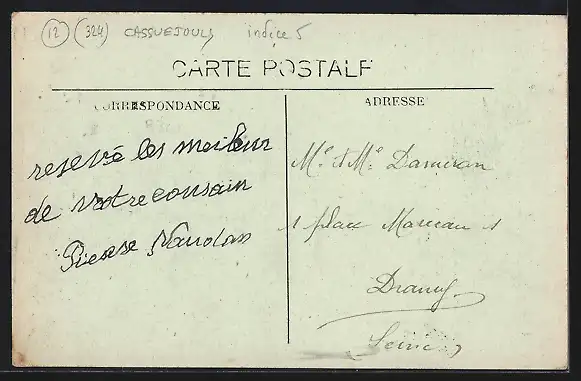 12 (324) CASSUEJOULS indice 5
CARTE POSTALE
CORRESPONDANCE
ADRESSE
resevé les meileur
de votre cousain
Pierre
Mr et Me Dameran
1 place Marceau 1
Drancy
Seine